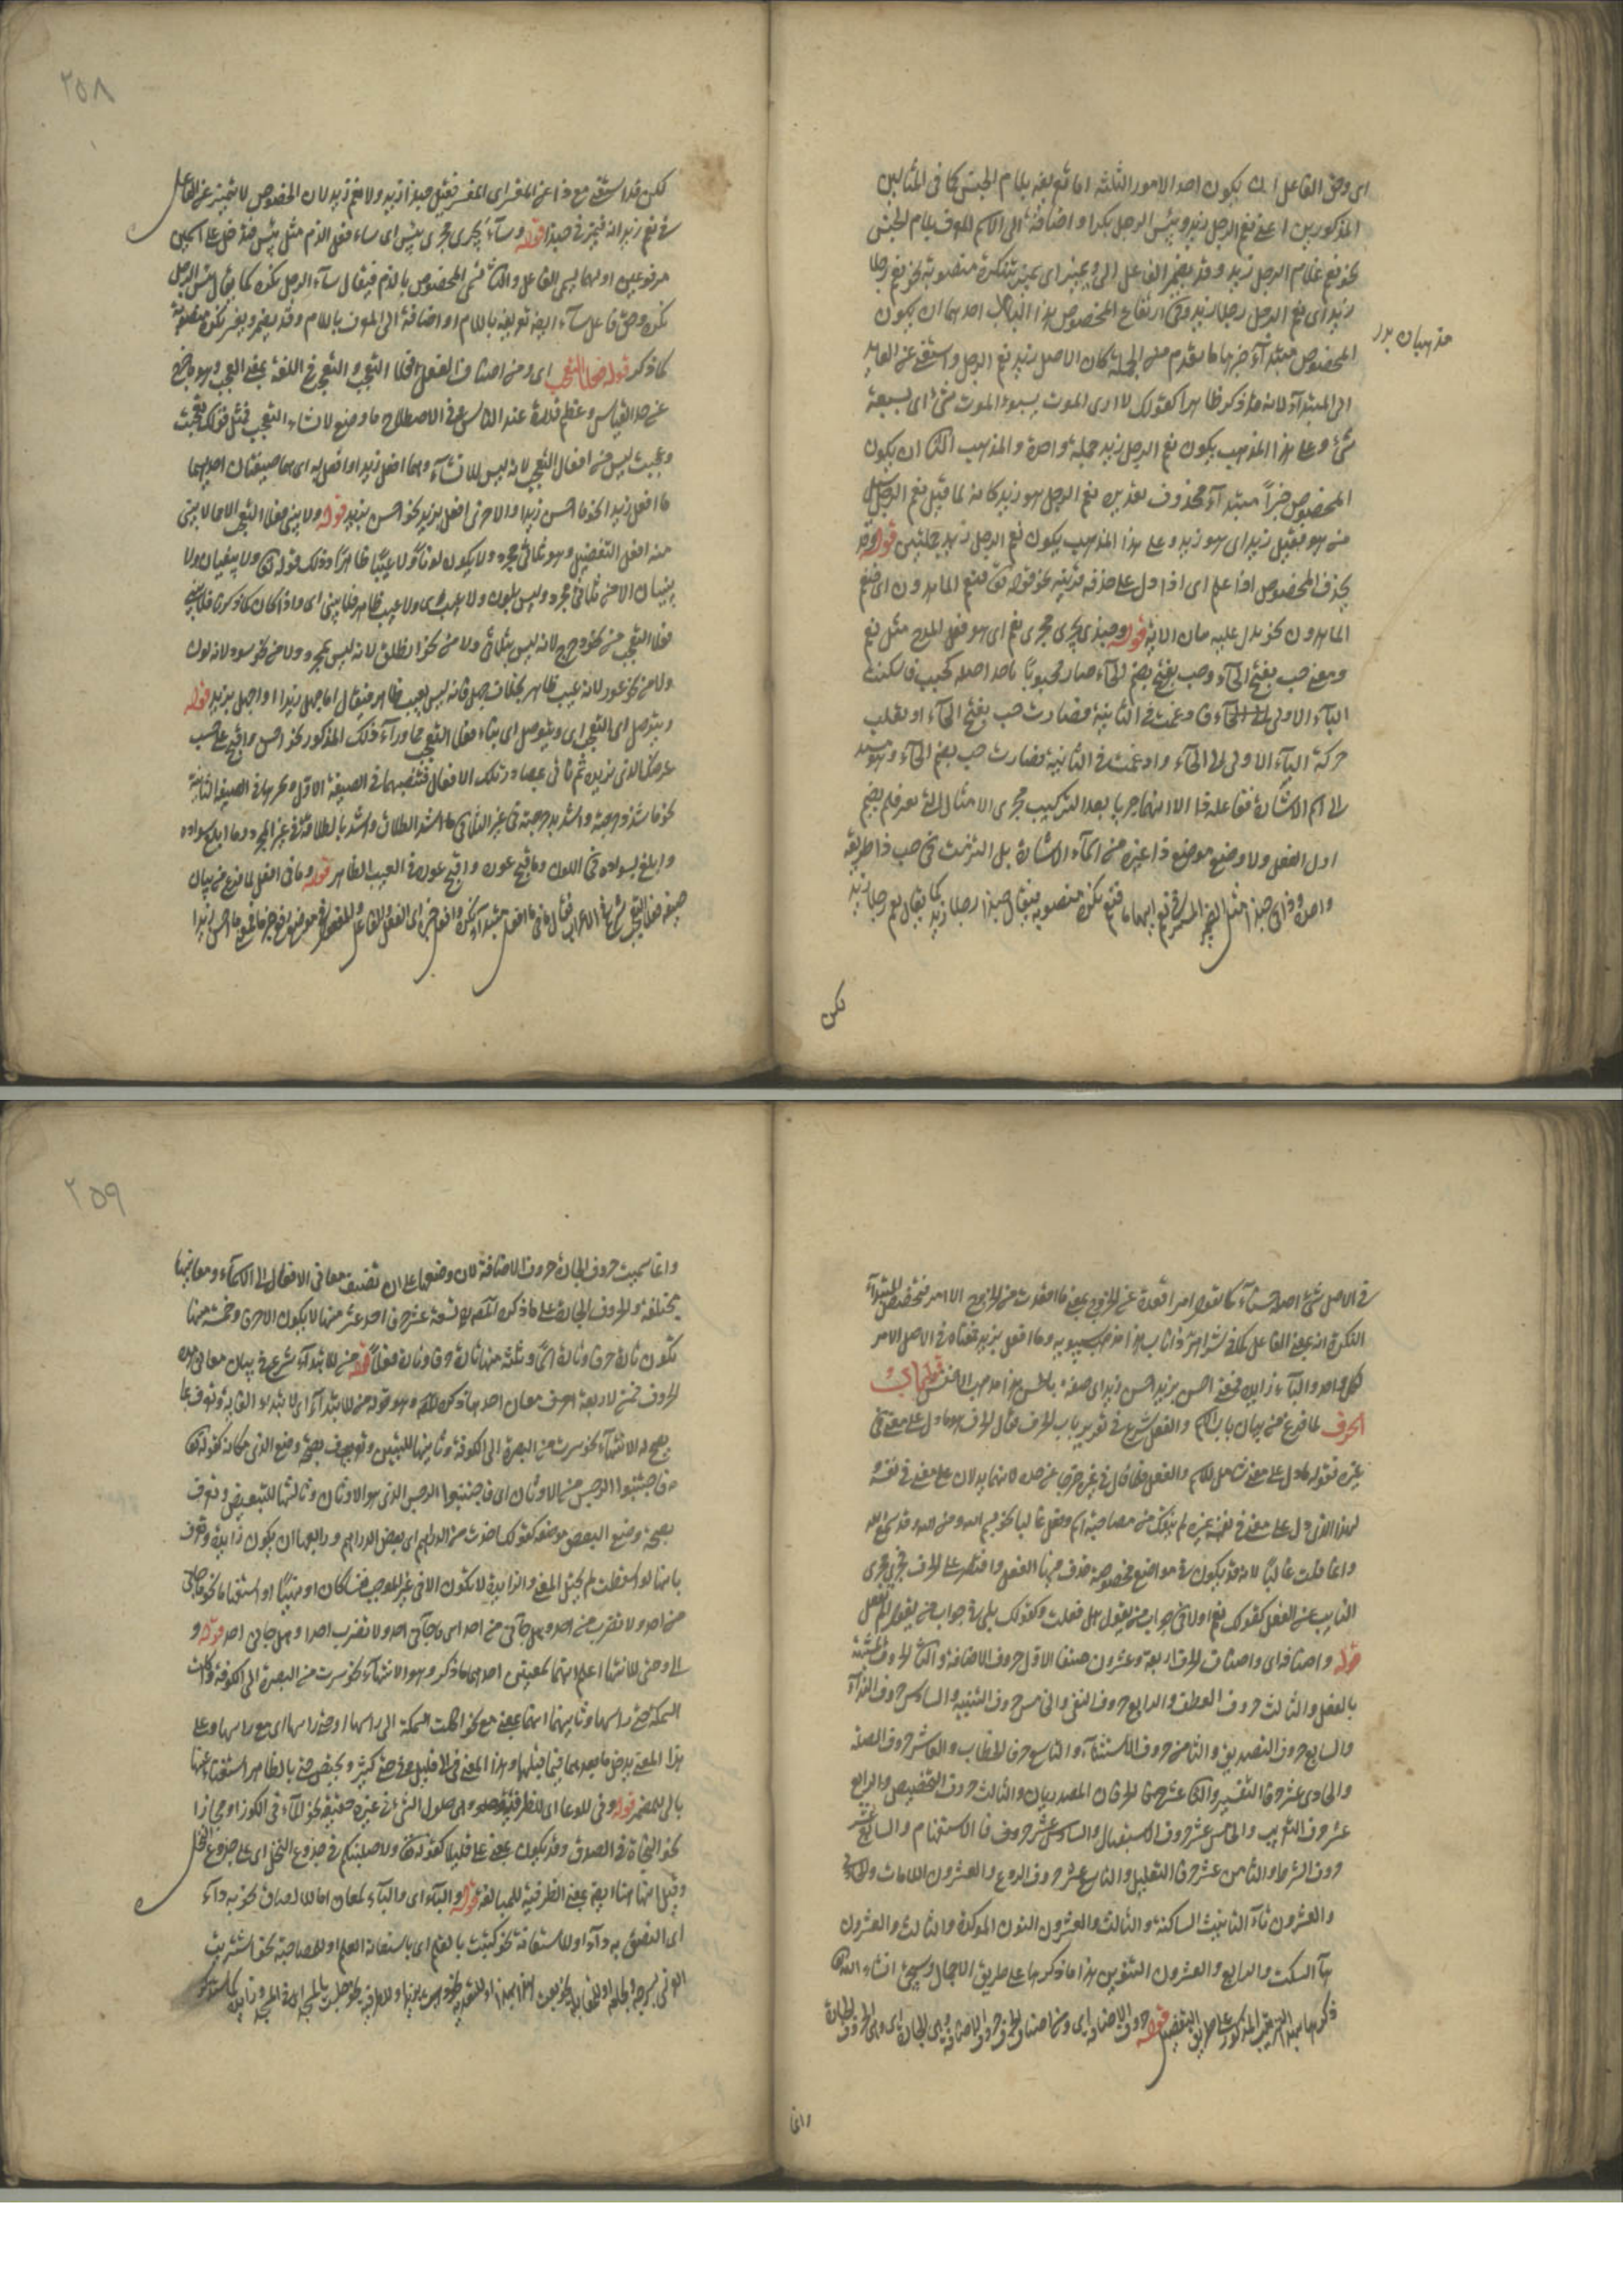 اى وحق الفاعل ان يكون احد الامور الثلثة اما تعريفه بلام الجنس كما فى المثالين
المذكورين اعنى نعم الرجل زيد وبئس الرجل بكر او اضافته الى الاسم المعرف بلام الجنس
نحو نعم غلام الرجل زيد وقد يضمر الفاعل ويميز اى يميز بنكرة منصوبة نحو نعم رجلا
زيد اى نعم الرجل رجلا زيد وفى ارتفاع المخصوص بهذا الباب احدهما ان يكون
مذهبان
المخصوص مبتدأ خبرها ما تقدم من الجملة كان الاصل زيد نعم الرجل واستغنى عن العايد
الى المبتدأ لانه قد ذكر ظاهرا كقولك لا ارى الموت يسبق الموت شئ اى يسبقه
شئ وعلى هذا المذهب يكون نعم الرجل زيد جملة واحدة والمذهب الثانى ان يكون
المخصوص خبرا مبتدأه محذوف تقديره نعم الرجل هو زيد كانه لما قيل نعم الرجل سئل
من هو فقيل زيد اى هو زيد وعلى هذا المذهب يكون نعم الرجل زيد جملتين قوله وقد
يحذف المخصوص اذا علم اى اذا دل على حذفه قرينة نحو قوله تعالى فنعم الماهدون اى فنعم
الماهدون نحن يدل عليه سياق الاية قوله وحبذا يجرى مجرى نعم اى هو فعل المدح مثل نعم
ومعنى حب بفتح الحآء وحب بضم الحآء صار محبوبا جدا اصله حبب فاسكنت
البآء الاولى فادغمت فى الثانية فصارت حب بفتح الحآء او نقلت
حركة البآء الاولى الى الحآء وادغمت فى الثانية فصارت حب بضم الحآء وهو مسند
الى اسم الاشارة ففاعله ذا الا انهما جريا بعد التركيب مجرى الامثال التى لا تغير فلم يضم
اول الفعل ولا وضع موضع ذا غيره من اسمآء الاشارة بل التزمت فى حب ذا طريقة
واحدة وذا فى حبذا مثل الضمير المستتر فى نعم ابهاما فيميز بنكرة منصوبة فيقال حبذا رجلا زيد كما يقال نعم رجلا زيد
لكن
٢٥٨
لكن قد استغنى مع ذا عن المفسر اى المفسر فقيل حبذا زيد ولا نعم زيد لان المخصوص لا يتميز عن الفاعل
فى نعم زيد انه يتميز فى حبذا قوله وسآء يجرى مجرى بئس اى ساء فعل الذم مثل بئس فيدخل على اسمين
مرفوعين اولهما يسمى الفاعل والثانى يسمى المخصوص بالذم فيقال سآء الرجل بكر كما يقال بئس الرجل
بكر وحق فاعل سآء ايضا تعريفه باللام او اضافته الى المعرف باللام وقد يضمر ويفسر بنكرة منصوبة
كما ذكر قوله فعلا التعجب اى ومن اصناف الفعل فعلا التعجب والتعجب فى اللغة بمعنى العجب وهو ما خرج
عن حد القياس وعظم قدره عند الناس وفى الاصطلاح ما وضع لانشاء التعجب فمثل قولك تعجبت
وعجبت ليس من افعال التعجب لانه ليس للانشآء وهما ما افعل زيدا وافعل به اى هما صيغتان احديهما
ما افعل زيدا نحو ما احسن زيدا والاخرى افعل بزيد نحو احسن بزيد قوله ولا يبنى فعلا التعجب الا مما يبنى
منه افعل التفضيل وهو ثلاثى مجرد ولا يكون لونا ولا عيبا ظاهرا وذلك قوله ولا يبنيان
الا من ثلاثى مجرد وليس بلون ولا عيب ظاهر فلا يبنى اى واذا كان كما ذكرنا فلا يبنى
فعلا التعجب من نحو دحرج لانه ليس بثلاثى ولا من نحو انطلق لانه ليس بمجرد ولا من نحو سود لانه لون
ولا من نحو عور لانه عيب ظاهر بخلاف جهل فانه ليس بعيب ظاهر فيقال ما اجهل زيدا واجهل بزيد قوله
ويتوصل الى التعجب اى ويتوصل الى بناء فعلى التعجب مما ورآء ذلك المذكور نحو احسن واقبح على حسب
غرضك الذى تريده ثم تأتى بمصادر تلك الافعال فتنصبها فى الصيغة الاولى وتجرها فى الصيغة الثانية
نحو ما اشد دحرجته واشدد بدحرجته فى غير الثلاثى وما اشد انطلاقه واشدد بانطلاقه فى غير المجرد وما ابلغ سواده
وابلغ بسواده فى اللون وما اقبح عوره واقبح بعوره فى العيب الظاهر قوله وما فى افعل لما فرغ من بيان
صيغة فعلى التعجب شرع فى الاعراب فقال ما فى ما افعل مبتدأ نكرة وافعل خبره اى الفعل والفاعل والمفعول فى موضع رفع خبر ما فمعنى ما احسن زيدا
فى الاصل شئ احسن زيدا كما تقول امر اقعده عن الخروج بمعنى ما اقعده عن الخروج الا امر فتخصيص المبتدأ
النكرة انه بمعنى الفاعل كما فى شر اهر ذا ناب هذا مذهب سيبويه وما افعل بزيد فمعناه فى الاصل الامر
لكل واحد والبآء زايدة فمعنى احسن بزيد احسن زيدا اى صفه بالحسن هذا مذهب الاخفش قوله باب
الحرف لما فرغ من بيان باب الاسم والفعل شرع فى تعريف باب الحرف فقال الحرف هو ما دل على معنى فى
غيره فقوله ما دل على معنى شامل للاسم والفعل فلما قال فى غيره خرجا عن حده لانهما يدلان على معنى فى نفسه و
لهذا الذى دل على معنى فى نفسه غيره لم ينفك من مصاحبة اسم وفعل غالبا
وانما قلت غالبا لانه قد يكون فى مواضع مخصوصة حذف فيها الفعل واقتصر على الحرف فيجرى مجرى
النايب عن الفعل كقولك نعم او لا فى جواب من يقول هل فعلت وكقولك بلى فى جواب من يقول الم تفعل
قوله واصنافه اى واصناف الحرف اربعة وعشرون صنفا الاول حروف الاضافة والثانى الحروف المشبهة
بالفعل والثالث حروف العطف والرابع حروف النفى والخامس حروف التنبيه والسادس حروف الندآء
والسابع حروف التصديق والثامن حروف الاستثنآء والتاسع حرفا الخطاب والعاشر حروف الصلة
والحادى عشر حرفا التفسير والثانى عشر الحرفان المصدريان والثالث عشر حروف التحضيض والرابع
عشر حرف التقريب والخامس عشر حروف الاستقبال والسادس عشر حرفا الاستفهام والسابع عشر
حروف الشرط والثامن عشر حرفا التعليل والتاسع عشر حروف الردع والعشرون اللامات والحادى
والعشرون تآء التانيث الساكنة والثانى والعشرون النون المؤكدة والثالث والعشرون
هآء السكت والرابع والعشرون التنوين هذا ما ذكرها على طريق الاجمال وسيجئ انشاء الله
ذكرها بهذا الترتيب المذكور على طريق التفصيل قوله حروف الاضافة اى ومن اصناف الحرف حروف الاضافة وهى الجارة اى وهى الحروف الجارة
وانما
٢٥٩
وانما سميت حروف الجارة حروف الاضافة لان وضعها على ان تضيف معانى الافعال الى الاسمآء ومعانيها
مختلفة والحروف الجارة على ما ذكره المصنف تسعة عشر حرفا احد عشر منها لا يكون الا حرفا وخمسة منها
تكون تارة حرفا وتارة اسما وثلثة منها تارة حرفا وتارة فعلا قوله من للابتدآء شرع فى بيان معانى هذه
الحروف فمن لاربعة معان احدها ما ذكره وهو قوله من للابتدآء اى لابتداء الغاية وتعرف بما
يصح له الانتهآء نحو سرت من البصرة الى الكوفة وثانيها للتبيين وتعرف بصحة وضع الذى مكانه كقوله تعالى
فاجتنبوا الرجس من الاوثان اى فاجتنبوا الرجس الذى هو الاوثان وثالثها للتبعيض وتعرف
بصحة وضع البعض موضعه كقولك اخذت من الدراهم اى بعض الدراهم ورابعها ان يكون زايدة وتعرف
بانها لو اسقطت لم يختل المعنى والزايدة لا تكون الا فى غير الموجب نفيا كان او نهيا او استفهاما نحو ما جآءنى
من احد ولا تضرب من احد وهل جآءنى من احد اى ما جآءنى احد ولا تضرب احدا وهل جآءنى احد قوله و
الى وحتى للانتهآء اعلم انهما بمعنيين احدهما ما ذكر وهو الانتهآء نحو سرت من البصرة الى الكوفة واكلت
السمكة حتى راسها وثانيهما انهما بمعنى مع نحو اكلت السمكة الى راسها او حتى راسها اى مع راسها وعلى
هذا المعنى يدخل ما بعدهما فيما قبلهما وهذا المعنى فى الى قليل وفى حتى كثير ويختص حتى بالظاهر استغناء عنها
بالى للمضمر قوله وفى للوعا اى للظرفية وهى حلول الشئ فى غيره حقيقة نحو المآء فى الكوز او مجازا
نحو النجاة فى الصدق وقد يكون بمعنى على قليلا كقوله تعالى ولاصلبنكم فى جذوع النخل اى على جذوع النخل
وقيل انها هنا ايضا بمعنى الظرفية للمبالغة قوله والبآء اى والبآء لمعان اما للالصاق نحو به دآء
اى التصق به دآء او للاستعانة نحو كتبت بالقلم اى باستعانة القلم او للمصاحبة نحو اشتريت
الفرس بسرجه ولجامه او للمقابلة نحو بعت هذا بهذا او للتعدية نحو ذهبت بزيد او للظرفية نحو جلست بالمسجد اى فى المسجد وزايدة